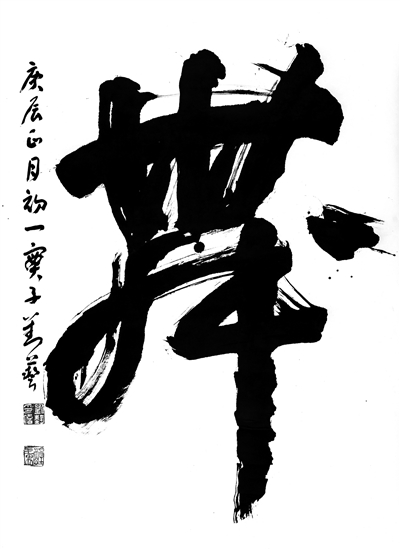 舞
庚辰正月初一寶子美藝